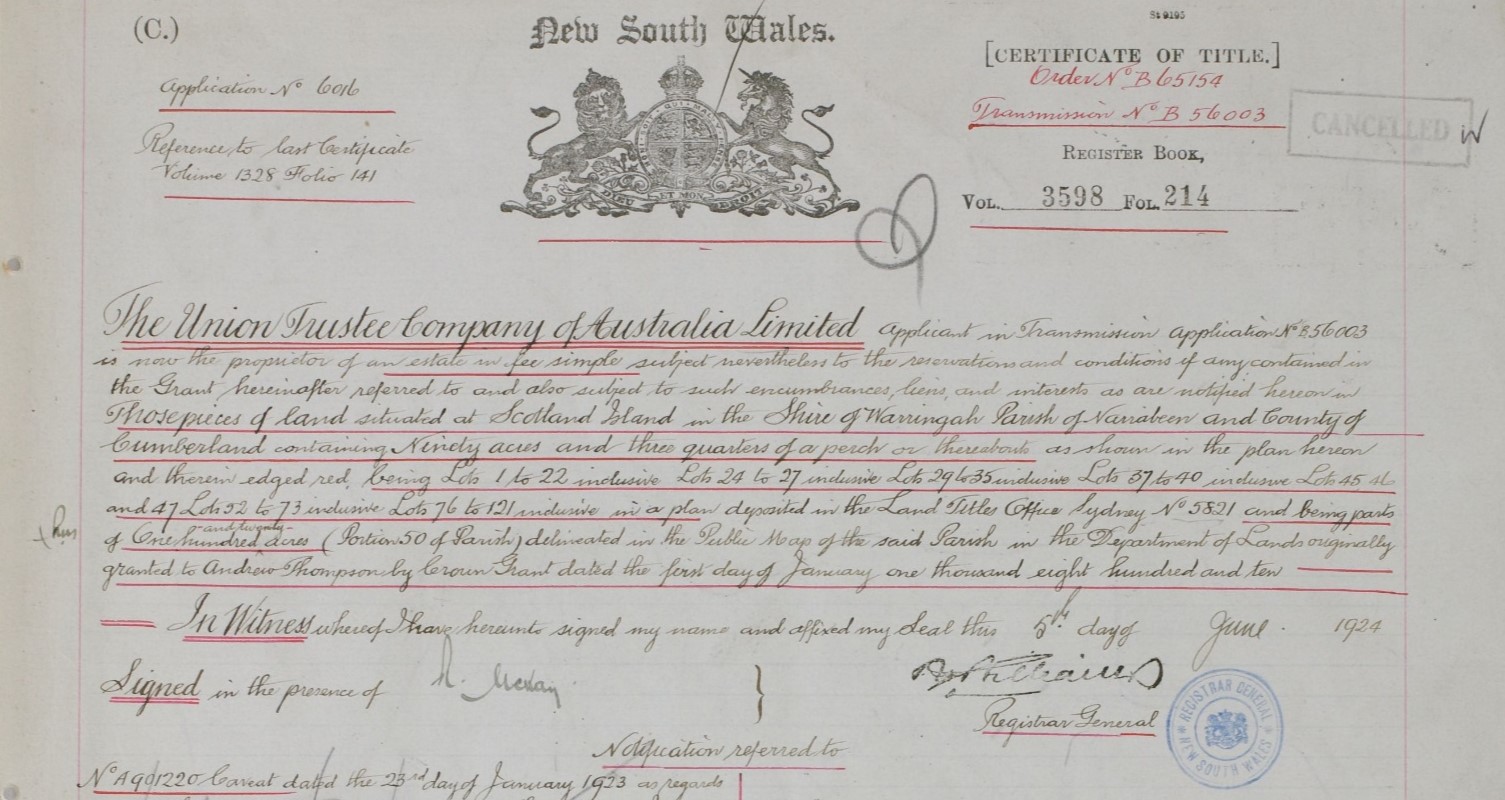 (C.)
New South Wales.
St 9195
[CERTIFICATE OF TITLE.]
Order No B 65154
Transmission No B 56003
CANCELLED
Application No 6016
Reference to last Certificate
Volume 1328 Folio 141
DIEU ET MON DROIT
REGISTER BOOK,
VOL. 3598 FOL. 214
The Union Trustee Company of Australia Limited Applicant in Transmission Application No B56003
is now the proprietor of an estate in fee simple subject nevertheless to the reservations and conditions if any contained in
the Grant hereinafter referred to and also subject to such encumbrances, liens, and interests as are notified hereon in
Those pieces of land situated at Scotland Island in the Shire of Warringah Parish of Narrabeen and County of
Cumberland containing Ninety acres and three quarters of a perch or thereabouts as shown in the plan hereon
and therein edged red, being Lots 1 to 22 inclusive Lots 24 to 27 inclusive Lots 29 to 35 inclusive Lots 37 to 40 inclusive Lots 45 46
and 47 Lots 52 to 73 inclusive Lots 76 to 121 inclusive in a plan deposited in the Land Titles Office Sydney No 5821 and being parts
and twenty
of One hundred acres (Portion 50 of Parish) delineated in the Public Map of the said Parish in the Department of Lands originally
granted to Andrew Thompson by Crown Grant dated the first day of January one thousand eight hundred and ten
In Witness whereof I have hereunto signed my name and affixed my Seal this 5th day of June 1924
Signed in the presence of
Registrar General
REGISTRAR GENERAL NEW SOUTH WALES
Notification referred to
No A901220 Caveat dated the 23rd day of January 1923 as regards